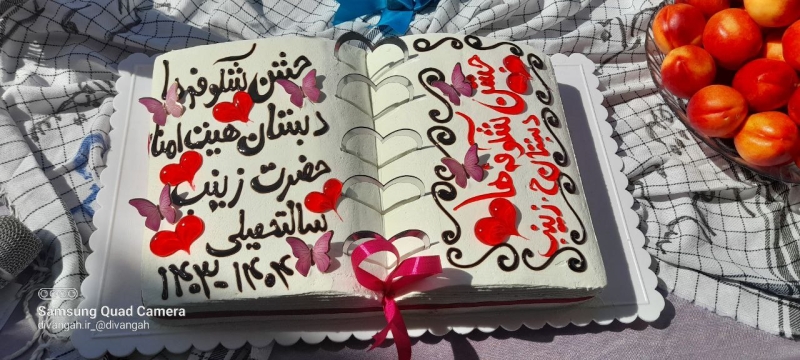 جشن شکوفه ها
دبستان هیئت امنا
حضرت زینب
سالتحصیلی
۱۴۰۳-۱۴۰۴
جشن شکوفه ها
دبستان ح. زینب
Samsung Quad Camera
divangah.ir_@divangah